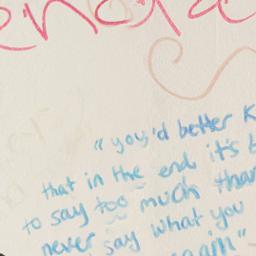 "you'd better K
that in the end it's b
to say too much than
never say what you
again"